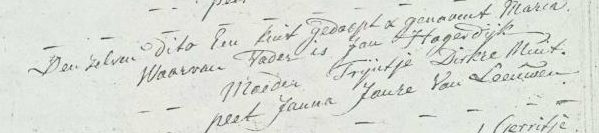 Den zelven dito Een kint gedoept & genaamt Maria.
Waarvan Vader is Jan Hogerdijk
Moeder Trijntje Dirkse Mint.
peet Janna Janse Van Leeuwen.
Gerritje